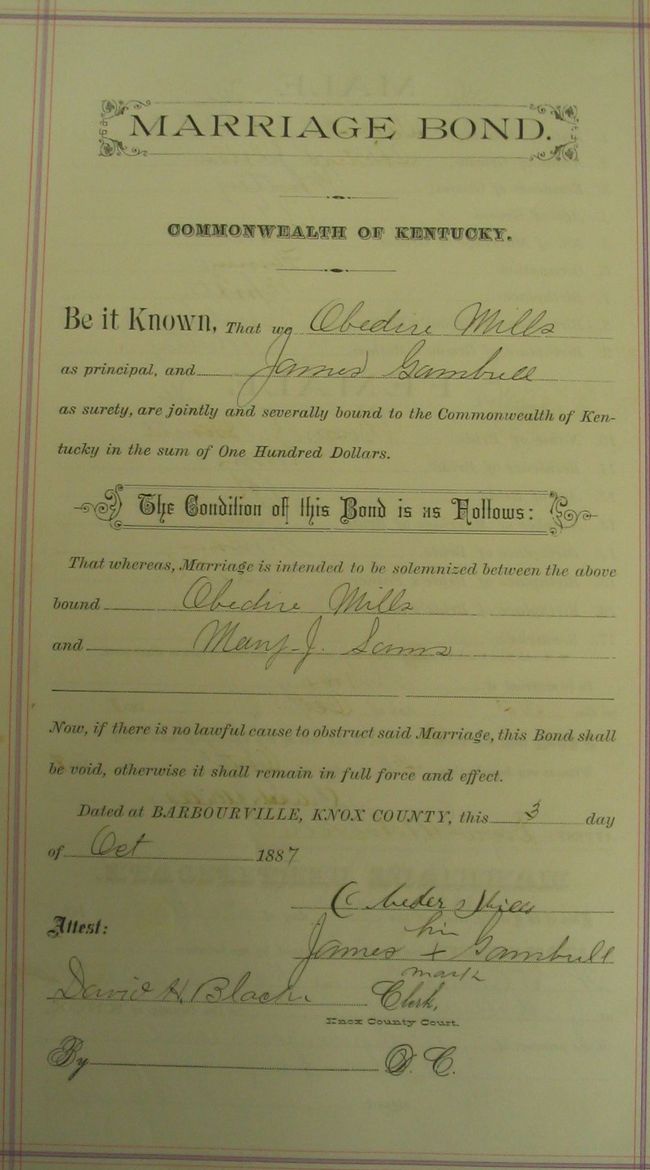 MARRIAGE BOND.
COMMONWEALTH OF KENTUCKY.
Be it Known, That we Obedire Mills
as principal, and James Gambrell
as surety, are jointly and severally bound to the Commonwealth of Ken-
tucky in the sum of One Hundred Dollars.
The Condition of this Bond is as Follows:
That whereas, Marriage is intended to be solemnized between the above
bound Obedire Mills
and Mary J. Sams
Now, if there is no lawful cause to obstruct said Marriage, this Bond shall
be void, otherwise it shall remain in full force and effect.
Dated at BARBOURVILLE, KNOX COUNTY, this 3 day
of Oct 1887
Mills
Attest:
his
James + Gambrell
mark
David H. Black Clerk,
Knox County Court.
By D. C.